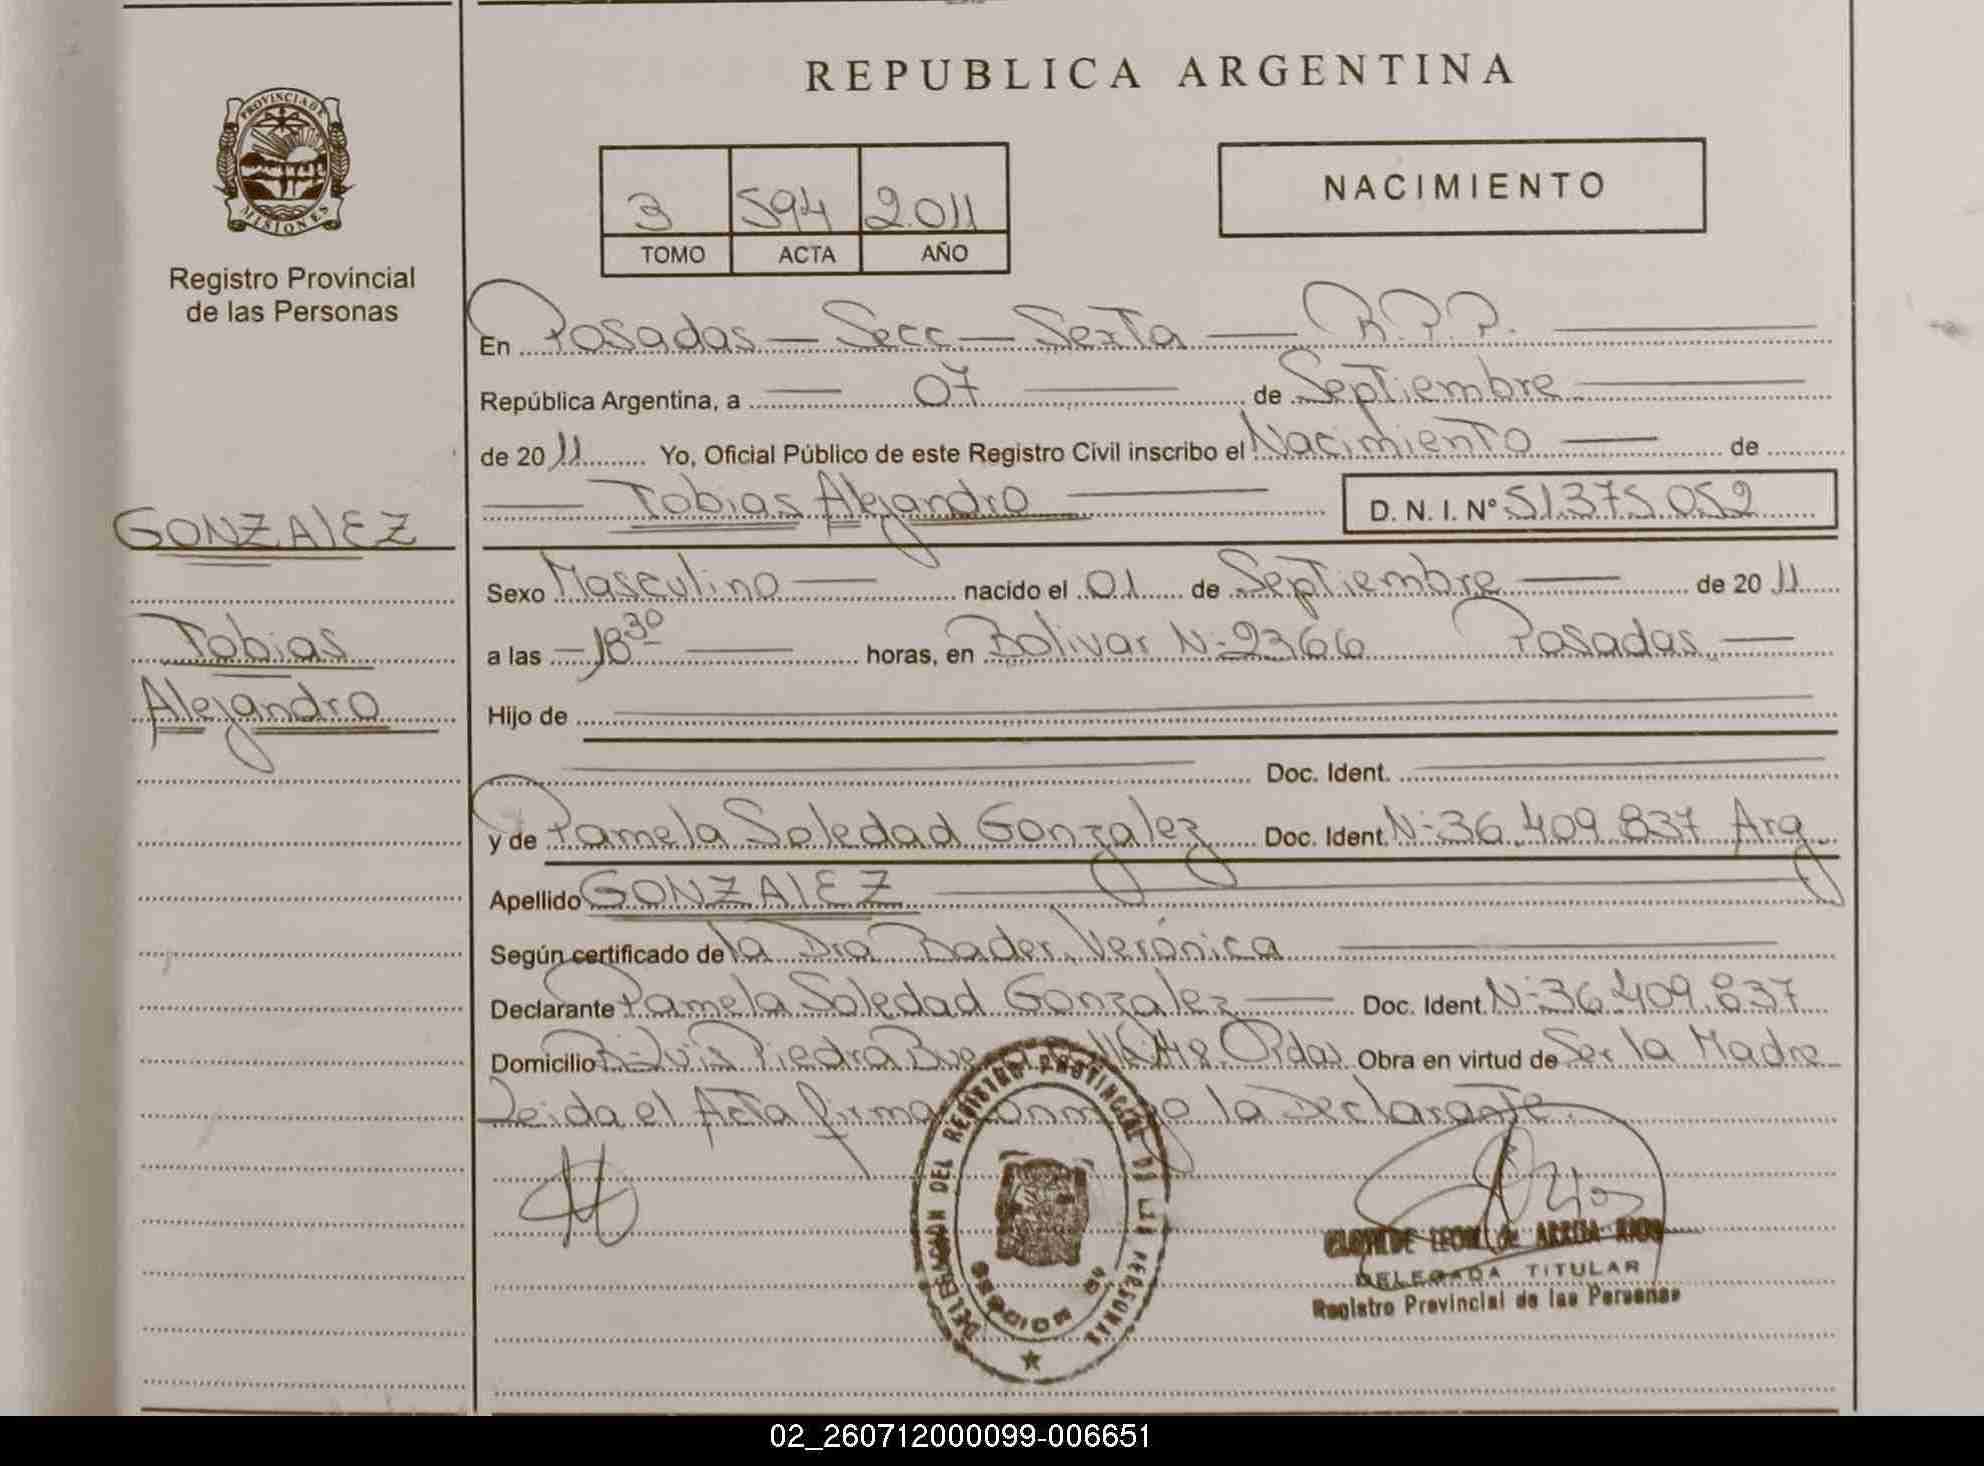 REPUBLICA ARGENTINA
PROVINCIA DE
MISIONES
Registro Provincial
de las Personas
3 594 2.011
TOMO ACTA AÑO
NACIMIENTO
En Posadas — Secc — Sexta — R.P.P.
República Argentina, a — 07 — de Septiembre —
de 2011 Yo, Oficial Público de este Registro Civil inscribo el Nacimiento — de
— Tobias Alejandro — D. N. I. Nº 51.375.052
GONZALEZ
Tobias
Alejandro
Sexo Masculino — nacido el 01 de Septiembre — de 2011
a las — 18 30 — horas, en Bolivar N- 2366 Posadas —
Hijo de —
— Doc. Ident. —
y de Pamela Soledad Gonzalez Doc. Ident. N- 36.409.837 Arg
Apellido GONZALEZ —
Según certificado de la Dra Bader, Verónica —
Declarante Pamela Soledad Gonzalez — Doc. Ident. N- 36.409.837
Domicilio Luis Piedra Pdas Obra en virtud de Ser la Madre
Leida el Acta firma la Declarante.
DELEGACION DEL REGISTRO PROVINCIAL DE LAS PERSONAS
SECCION 6ª
LEON de ARRUA
DELEGADA TITULAR
Registro Provincial de las Personas
02_260712000099-006651